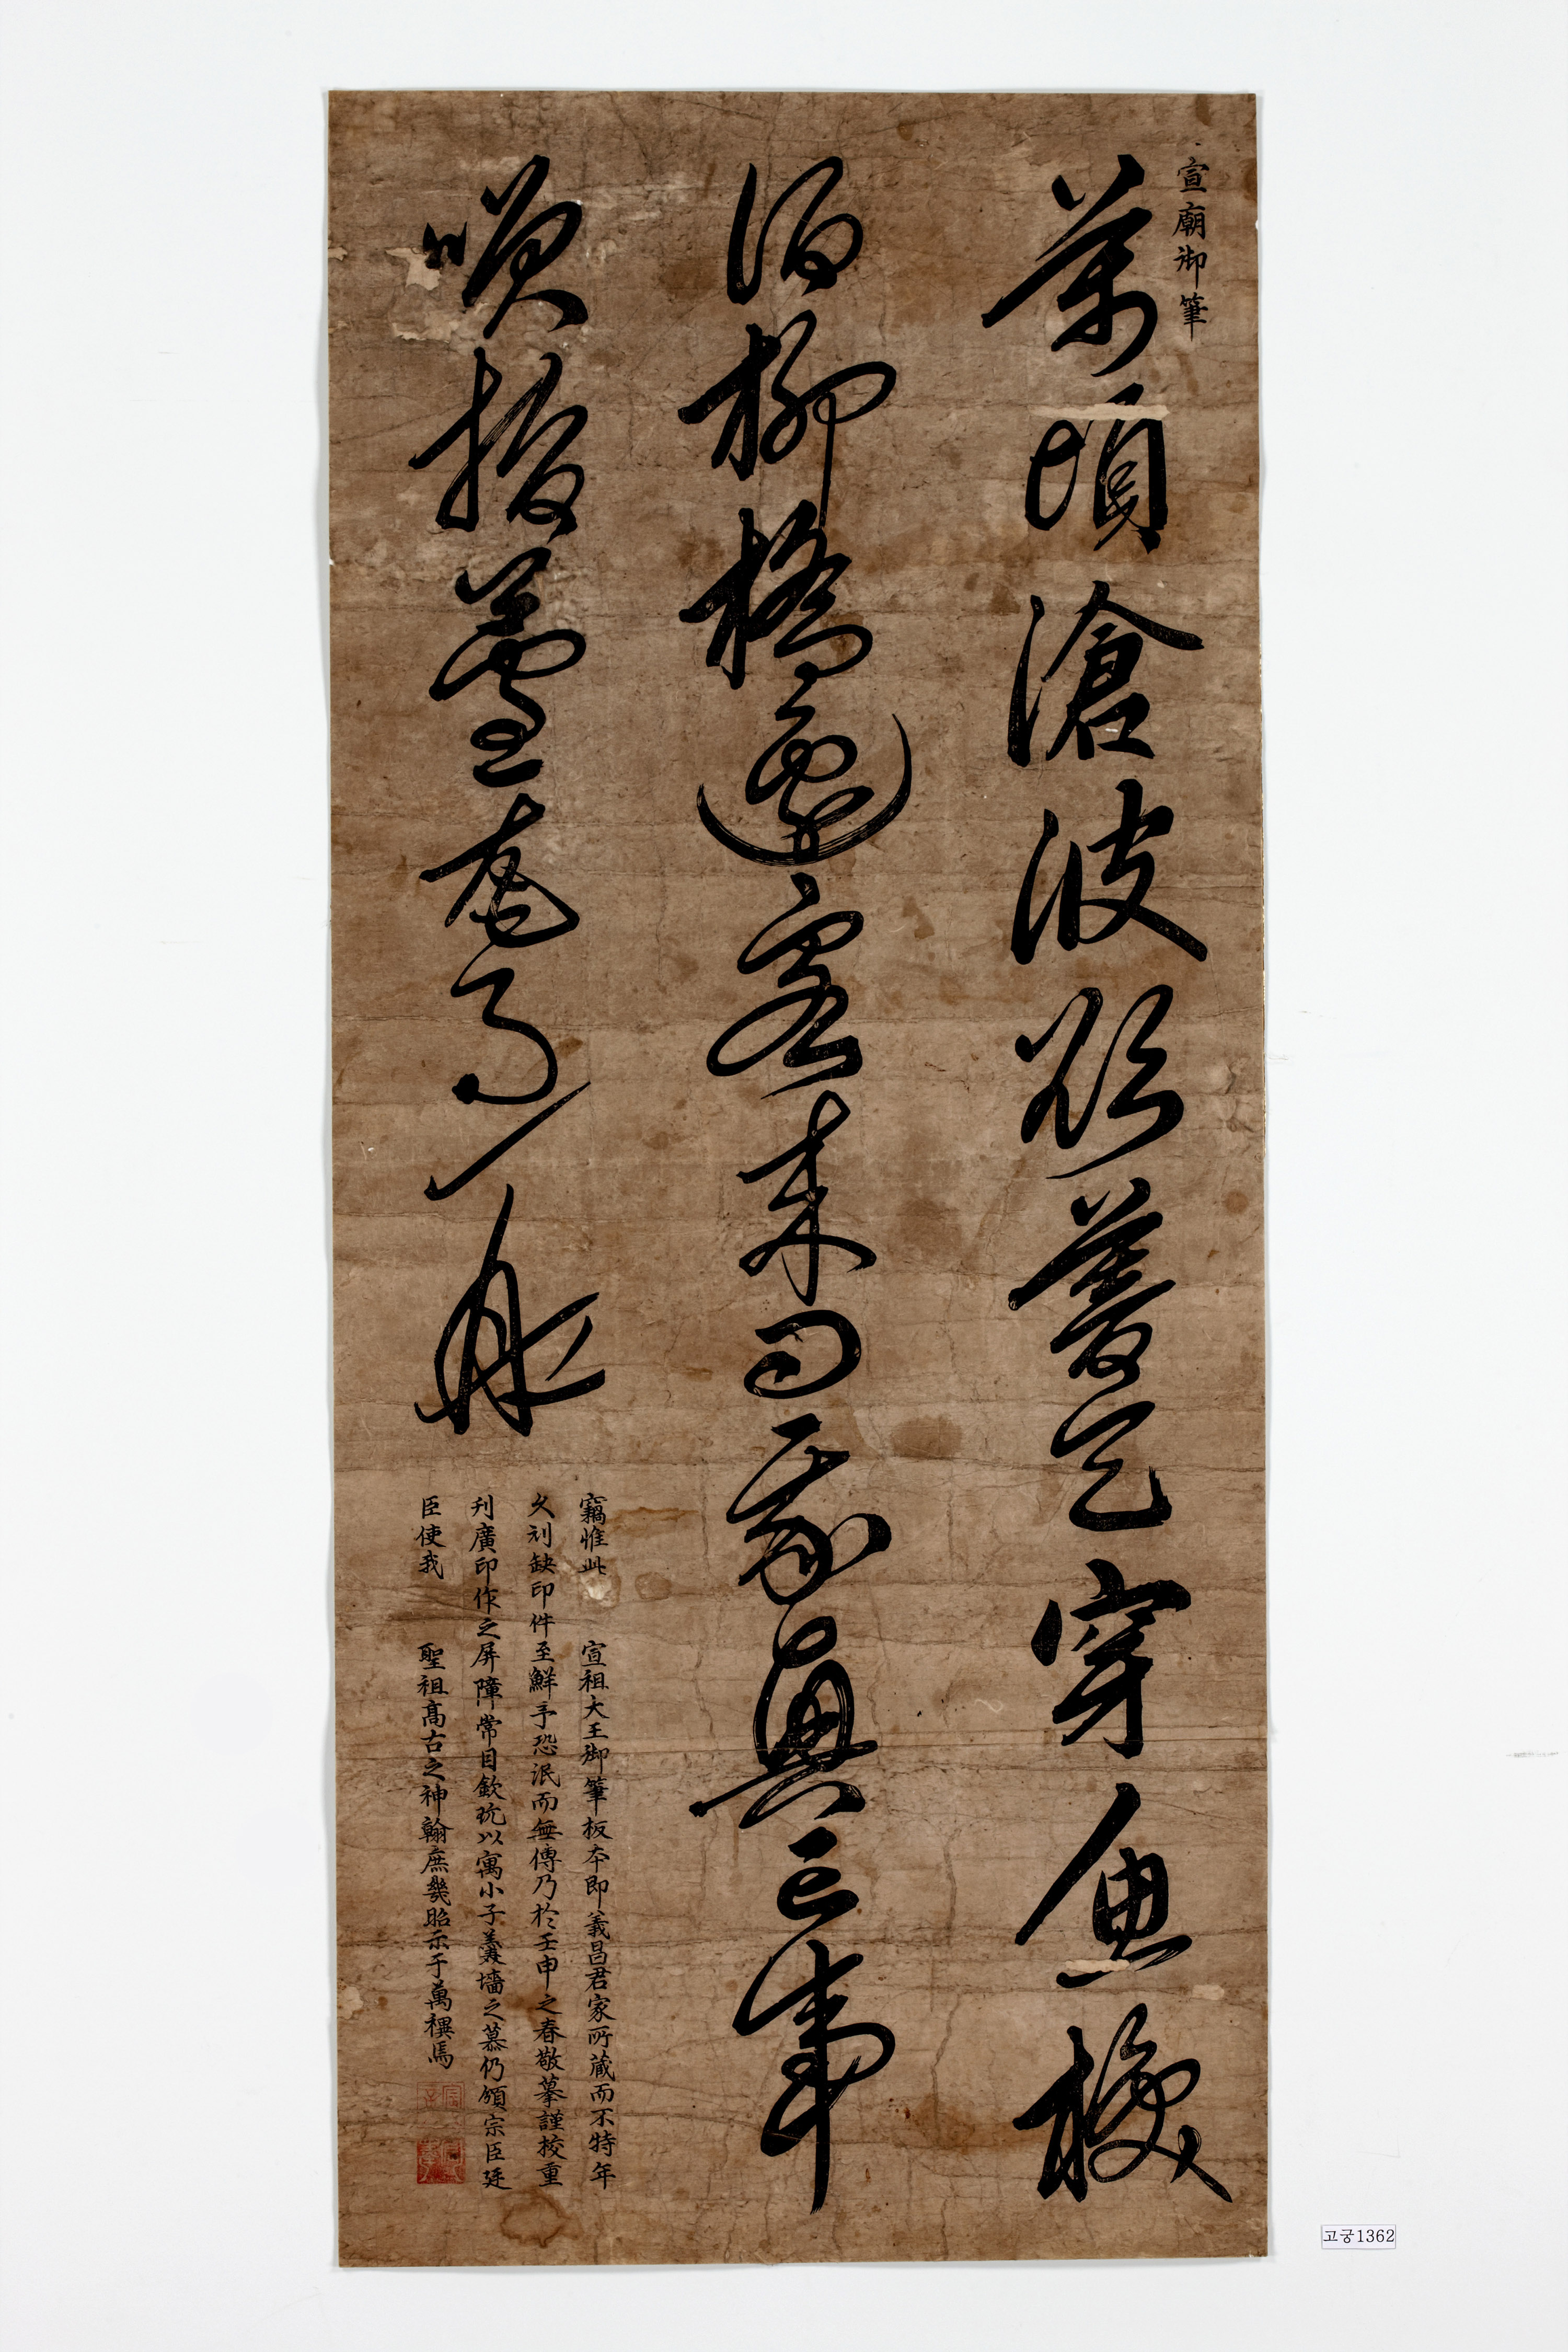 宣廟御筆
萬頃滄波欲暮天穿魚換
酒柳橋邊客來問我興亡事
咲指蘆花月一船
竊惟此 宣祖大王御筆板本即義昌君家所藏而不特年
久刓缺印件至鮮予恐泯而無傳乃於壬申之春敬摹謹校重
刊廣印作之屏障常目欽玩以寓小子羹墻之慕仍頒宗臣廷
臣使我 聖祖高古之神翰庶幾昭示于萬禩焉
고궁1362